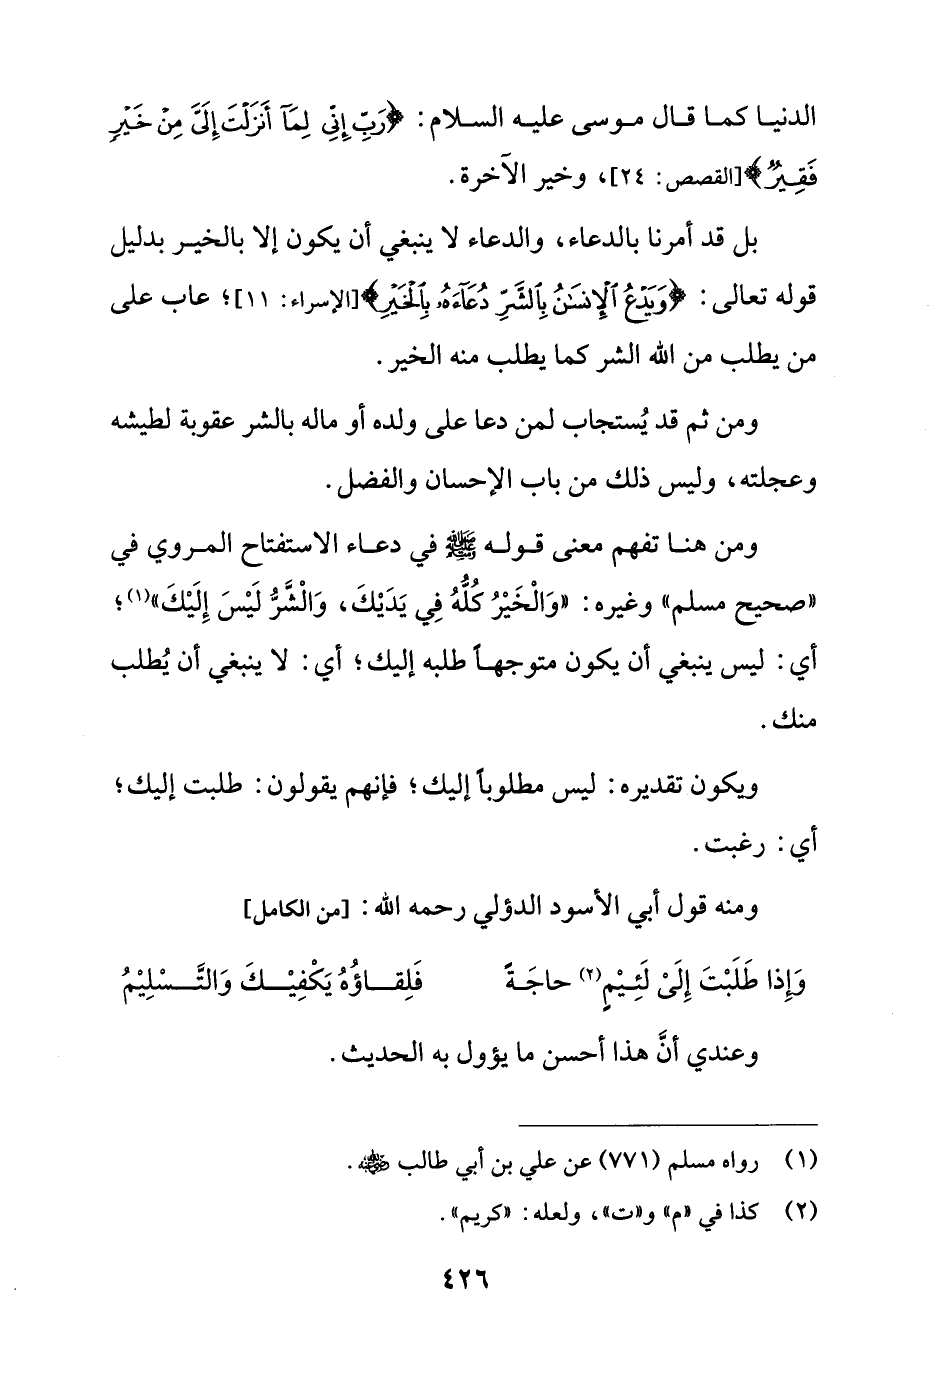 الدنيا كما قال موسى عليه السلام: ﴿رَبِّ إِنِّي لِمَآ أَنزَلْتَ إِلَيَّ مِنْ خَيْرٍ
فَقِيرٌ﴾[القصص: ٢٤]، وخير الآخرة.
بل قد أمرنا بالدعاء، والدعاء لا ينبغي أن يكون إلا بالخير بدليل
قوله تعالى: ﴿وَيَدْعُ ٱلْإِنسَٰنُ بِٱلشَّرِّ دُعَآءَهُۥ بِٱلْخَيْرِ﴾[الإسراء: ١١]؛ عاب على
من يطلب من الله الشر كما يطلب منه الخير.
ومن ثم قد يُستجاب لمن دعا على ولده أو ماله بالشر عقوبة لطيشه
وعجلته، وليس ذلك من باب الإحسان والفضل.
ومن هنا تفهم معنى قوله ﷺ في دعاء الاستفتاح المروي في
«صحيح مسلم» وغيره: «وَالْخَيْرُ كُلُّهُ فِي يَدَيْكَ، وَالْشَّرُّ لَيْسَ إِلَيْكَ»(١)؛
أي: ليس ينبغي أن يكون متوجهاً طلبه إليك؛ أي: لا ينبغي أن يُطلب
منك.
ويكون تقديره: ليس مطلوباً إليك؛ فإنهم يقولون: طلبت إليك؛
أي: رغبت.
ومنه قول أبي الأسود الدؤلي رحمه الله: [من الكامل]
وَإِذا طَلَبْتَ إِلَىْ لَئِيْمٍ(٢) حاجَةً فَلِقاؤُهُ يَكْفِيْكَ وَالتَّسْلِيْمُ
وعندي أنَّ هذا أحسن ما يؤول به الحديث.
(١) رواه مسلم (٧٧١) عن علي بن أبي طالب رضي الله عنه.
(٢) كذا في «م» و«ت»، ولعله: «كريم».
٤٢٦